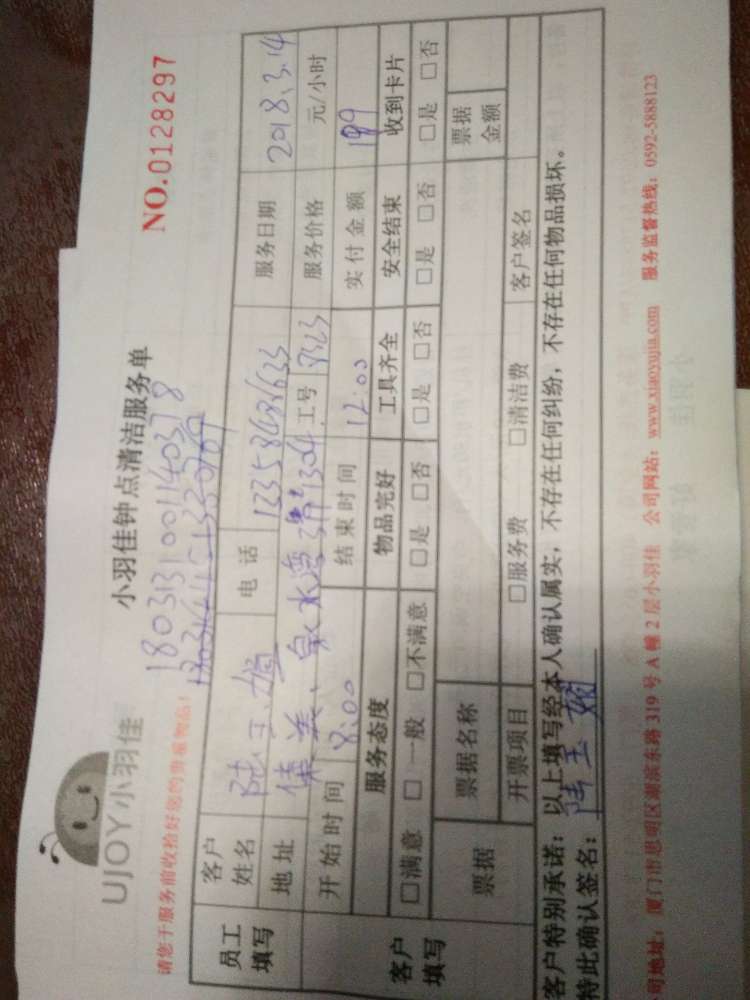 UJOY小羽佳
小羽佳钟点清洁服务单
NO.0128297
1803131001140378
请您于服务前收拾好您的贵重物品!
员工填写
客户姓名
电话
服务日期 2018.3.14
地址
工号 7523
服务价格 元/小时
客户填写
开始时间 8:00
结束时间 12:00
实付金额 199
服务态度 物品完好 工具齐全 安全结束 收到卡片
□满意 □一般 □不满意 □是 □否 □是 □否 □是 □否 □是 □否
票据
票据名称
票据金额
开票项目 □服务费 □清洁费 客户签名
客户特别承诺:以上填写经本人确认属实,不存在任何纠纷,不存在任何物品损坏。
特此确认签名:
司地址:厦门市思明区湖滨东路319号A幢2层小羽佳 公司网站:www.xiaoyujia.com 服务监督热线:0592-5888123